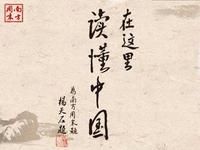 在这里
读懂中国
为南方周末题
杨天石题
南方
周末